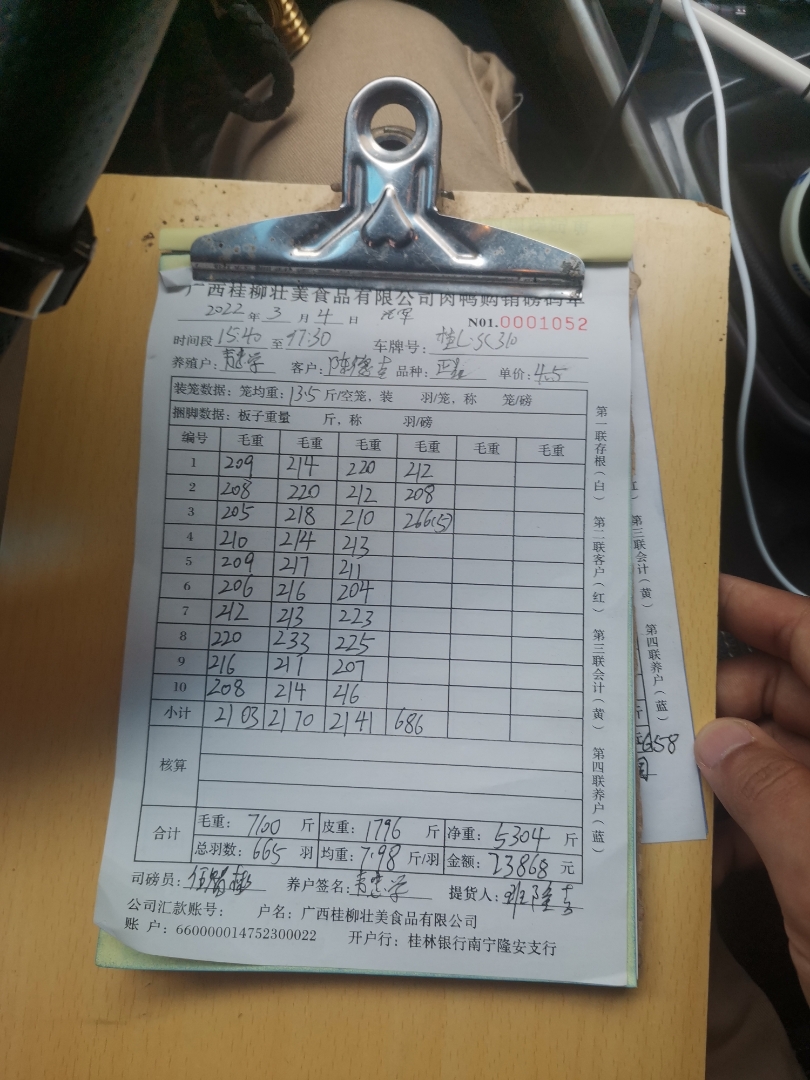 广西桂柳壮美食品有限公司肉鸭购销磅码单
2022 年 3 月 4 日
N01.0001052
时间段 15:40 至 17:30 车牌号: 桂L·SC310
养殖户: 客户: 品种: 单价: 4.5
装笼数据: 笼均重: 13.5 斤/空笼, 装 羽/笼, 称 笼/磅
捆脚数据: 板子重量 斤, 称 羽/磅
编号 毛重 毛重 毛重 毛重 毛重 毛重
1 209 214 220 212
2 208 220 212 208
3 205 218 210 266(5)
4 210 214 213
5 209 217 211
6 206 216 204
7 212 213 223
8 220 233 225
9 216 211 207
10 208 214 216
小计 2103 2170 2141 686
核算
合计 毛重: 7100 斤 皮重: 1796 斤 净重: 5304 斤
总羽数: 665 羽 均重: 7.98 斤/羽 金额: 23868 元
司磅员: 养户签名: 提货人:
公司汇款账号: 户名: 广西桂柳壮美食品有限公司
账 户: 660000014752300022 开户行: 桂林银行南宁隆安支行
第一联存根(白) 第二联客户(红) 第三联会计(黄) 第四联养户(蓝)
第三联会计(黄) 第四联养户(蓝)
斤
658